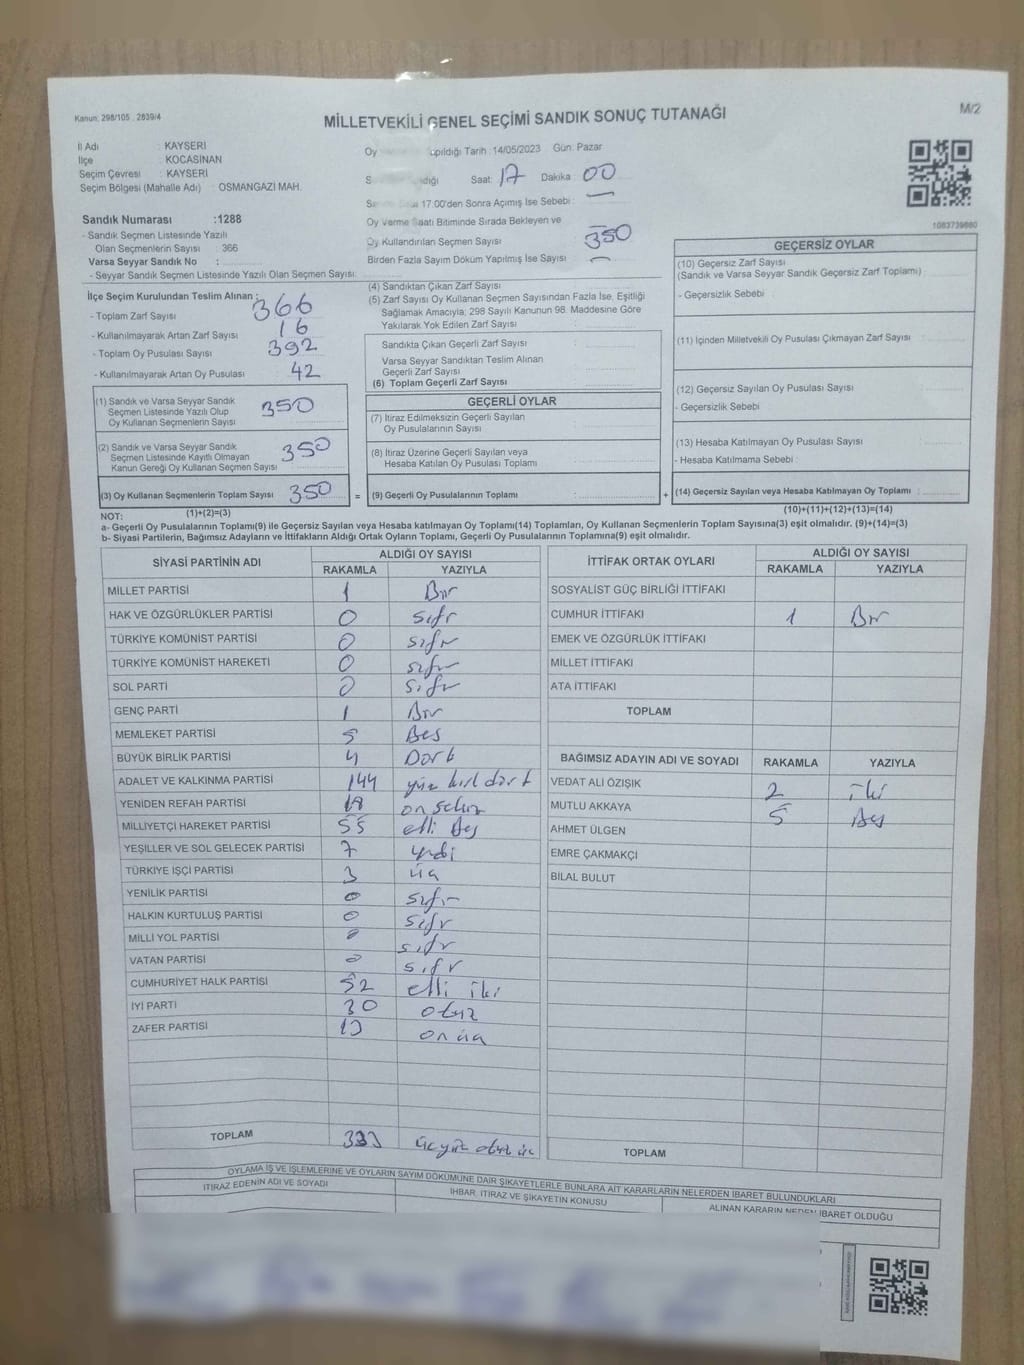 Kanun: 298/105 , 2839/4
MİLLETVEKİLİ GENEL SEÇİMİ SANDIK SONUÇ TUTANAĞI
M/2
İl Adı : KAYSERİ
İlçe : KOCASİNAN
Seçim Çevresi : KAYSERİ
Seçim Bölgesi (Mahalle Adı) : OSMANGAZİ MAH.
Oy apıldığı Tarih :14/05/2023 Gün: Pazar
Saat: 17 Dakika : 00
17:00'den Sonra Açımış İse Sebebi :
Oy Verme Saati Bitiminde Sırada Bekleyen ve
Oy Kullandırılan Seçmen Sayısı : 350
Birden Fazla Sayım Döküm Yapılmış İse Sayısı
1083739680
Sandık Numarası :1288
- Sandık Seçmen Listesinde Yazılı
Olan Seçmenlerin Sayısı : 366
Varsa Seyyar Sandık No :
- Seyyar Sandık Seçmen Listesinde Yazılı Olan Seçmen Sayısı:
İlçe Seçim Kurulundan Teslim Alınan :
- Toplam Zarf Sayısı 366
- Kullanılmayarak Artan Zarf Sayısı 16
- Toplam Oy Pusulası Sayısı 392
- Kullanılmayarak Artan Oy Pusulası 42
(1) Sandık ve Varsa Seyyar Sandık
Seçmen Listesinde Yazılı Olup
Oy Kullanan Seçmenlerin Sayısı 350
(2) Sandık ve Varsa Seyyar Sandık
Seçmen Listesinde Kayıtlı Olmayan
Kanun Gereği Oy Kullanan Seçmen Sayısı 350
(3) Oy Kullanan Seçmenlerin Toplam Sayısı 350 =
(1)+(2)=(3)
(4) Sandıktan Çıkan Zarf Sayısı :
(5) Zarf Sayısı Oy Kullanan Seçmen Sayısından Fazla İse, Eşitliği
Sağlamak Amacıyla; 298 Sayılı Kanunun 98. Maddesine Göre
Yakılarak Yok Edilen Zarf Sayısı :
Sandıkta Çıkan Geçerli Zarf Sayısı :
Varsa Seyyar Sandıktan Teslim Alınan
Geçerli Zarf Sayısı :
(6) Toplam Geçerli Zarf Sayısı :
GEÇERLİ OYLAR
(7) İtiraz Edilmeksizin Geçerli Sayılan
Oy Pusulalarının Sayısı :
(8) İtiraz Üzerine Geçerli Sayılan veya
Hesaba Katılan Oy Pusulası Toplamı :
(9) Geçerli Oy Pusulalarının Toplamı : +
GEÇERSİZ OYLAR
(10) Geçersiz Zarf Sayısı
(Sandık ve Varsa Seyyar Sandık Geçersiz Zarf Toplamı) :
- Geçersizlik Sebebi :
(11) İçinden Milletvekili Oy Pusulası Çıkmayan Zarf Sayısı :
(12) Geçersiz Sayılan Oy Pusulası Sayısı :
- Geçersizlik Sebebi :
(13) Hesaba Katılmayan Oy Pusulası Sayısı :
- Hesaba Katılmama Sebebi :
(14) Geçersiz Sayılan veya Hesaba Katılmayan Oy Toplamı :
(10)+(11)+(12)+(13)=(14)
NOT:
a- Geçerli Oy Pusulalarının Toplamı(9) ile Geçersiz Sayılan veya Hesaba katılmayan Oy Toplamı(14) Toplamları, Oy Kullanan Seçmenlerin Toplam Sayısına(3) eşit olmalıdır. (9)+(14)=(3)
b- Siyasi Partilerin, Bağımsız Adayların ve İttifakların Aldığı Ortak Oyların Toplamı, Geçerli Oy Pusulalarının Toplamına(9) eşit olmalıdır.
SİYASİ PARTİNİN ADI ALDIĞI OY SAYISI
RAKAMLA YAZIYLA
MİLLET PARTİSİ 1 Bir
HAK VE ÖZGÜRLÜKLER PARTİSİ 0 sıfır
TÜRKİYE KOMÜNİST PARTİSİ 0 sıfır
TÜRKİYE KOMÜNİST HAREKETİ 0 sıfır
SOL PARTİ 0 sıfır
GENÇ PARTİ 1 Bir
MEMLEKET PARTİSİ 5 Beş
BÜYÜK BİRLİK PARTİSİ 4 Dört
ADALET VE KALKINMA PARTİSİ 144 yüz kırk dört
YENİDEN REFAH PARTİSİ 18 on sekiz
MİLLİYETÇİ HAREKET PARTİSİ 55 elli Beş
YEŞİLLER VE SOL GELECEK PARTİSİ 7 yedi
TÜRKİYE İŞÇİ PARTİSİ 3 üç
YENİLİK PARTİSİ 0 sıfır
HALKIN KURTULUŞ PARTİSİ 0 sıfır
MİLLİ YOL PARTİSİ 0 sıfır
VATAN PARTİSİ 0 sıfır
CUMHURİYET HALK PARTİSİ 52 elli iki
İYİ PARTİ 30 otuz
ZAFER PARTİSİ 13 on üç
TOPLAM 333 üçyüz otuz üç
İTTİFAK ORTAK OYLARI ALDIĞI OY SAYISI
RAKAMLA YAZIYLA
SOSYALİST GÜÇ BİRLİĞİ İTTİFAKI
CUMHUR İTTİFAKI 1 Bir
EMEK VE ÖZGÜRLÜK İTTİFAKI
MİLLET İTTİFAKI
ATA İTTİFAKI
TOPLAM
BAĞIMSIZ ADAYIN ADI VE SOYADI RAKAMLA YAZIYLA
VEDAT ALİ ÖZIŞIK 2 iki
MUTLU AKKAYA 5 Beş
AHMET ÜLGEN
EMRE ÇAKMAKÇI
BİLAL BULUT
TOPLAM
OYLAMA İŞ VE İŞLEMLERİNE VE OYLARIN SAYIM DÖKÜMÜNE DAİR ŞİKAYETLERLE BUNLARA AİT KARARLARIN NELERDEN İBARET BULUNDUKLARI
İTİRAZ EDENİN ADI VE SOYADI İHBAR, İTİRAZ VE ŞİKAYETİN KONUSU ALINAN KARARIN NEDEN İBARET OLDUĞU